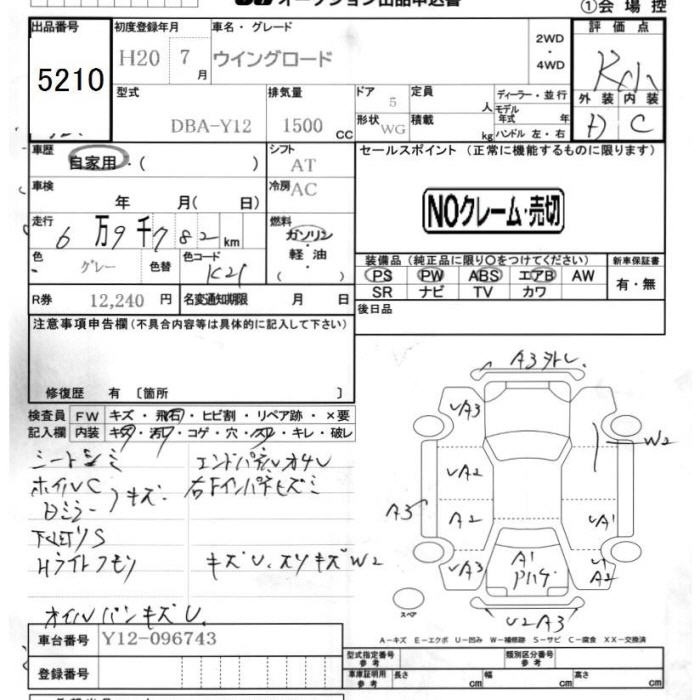 オークション出品申込書
①会場控
出品番号
5210
初度登録年月
H20 7月
車名・グレード
ウイングロード
2WD
・
4WD
評価点
外装 内装
D C
型式
DBA-Y12
排気量
1500 CC
ドア 5
形状 WG
定員 人
積載 kg
ディーラー・並行
モデル
年式 年
ハンドル 左・右
車歴
自家用・( )
シフト AT
冷房 AC
車検
年 月( 日)
走行
6万9千782km
燃料
ガソリン
・
軽油
・
色 グレー
色替
色コード
K21
R券 12,240円
名変通知期限 月 日
セールスポイント (正常に機能するものに限ります)
NOクレーム・売切
装備品(純正品に限り〇をつけてください)
PS PW ABS エアB AW
SR ナビ TV カワ
新車保証書
有・無
後日品
注意事項申告欄(不具合内容等は具体的に記入して下さい)
修復歴 有〔箇所 〕
検査員 FW キズ・飛石・ヒビ割・リペア跡・×要
記入欄 内装 キズ・汚レ・コゲ・穴・スレ・キレ・破レ
シートシミ
ホイルC
Dミラー キズ
Hライトクモリ
オイルパンキズU.
エンドパネルオサレ
右Fインパネヒズミ
キズU、スリキズW2
A3外し
A3
W2
A2
A3
A2
A1
A3
A1
A2
U2A3
スペア
A－キズ E－エクボ U－凹み W－補修跡 S－サビ C－腐食 XX－交換済
車台番号 Y12-096743
登録番号
型式指定番号
参考
類別区分番号
参考
車庫証明用
参考
長さ cm
幅 cm
高さ cm